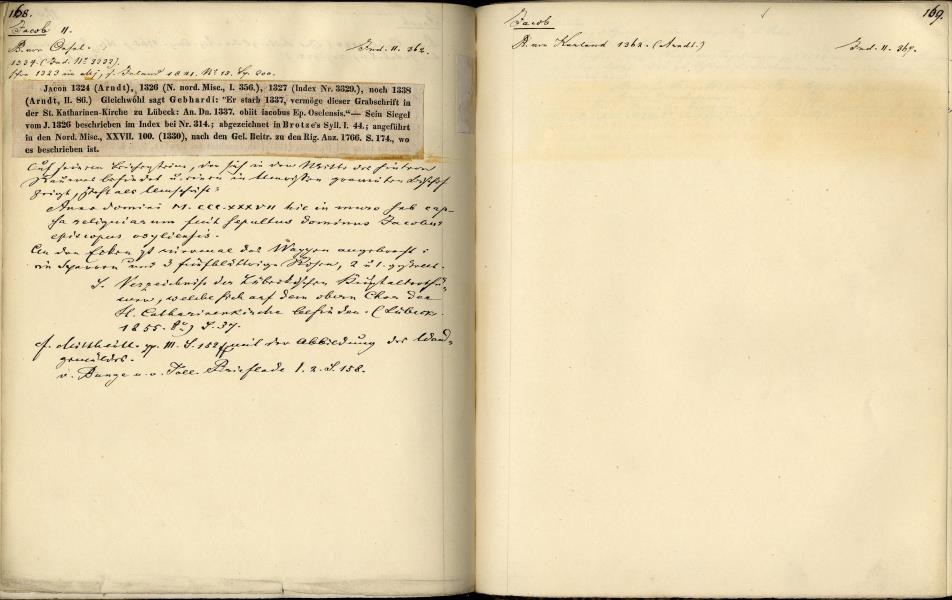 168.
Jacob II.
B. von Oesel. Ind. II. 362.
1324 (Ind. Nº 3333).
1323 in Inland 1841. Nº 13. Sp. 200.
Jacob 1324 (Arndt), 1326 (N. nord. Misc., I. 356.), 1327 (Index Nr. 3329.), noch 1338
(Arndt, II. 86.) Gleichwohl sagt Gebhardi: "Er starb 1337, vermöge dieser Grabschrift in
der St. Katharinen-Kirche zu Lübeck: An. Dn. 1337. obiit iacobus Ep. Oselensis."— Sein Siegel
vom J. 1326 beschrieben im Index bei Nr. 314.; abgezeichnet in Brotze's Syll. I. 44.; angeführt
in den Nord. Misc., XXVII. 100. (1330), nach den Gel. Beitr. zu den Rig. Anz. 1766. S. 174., wo
es beschrieben ist.
Auf seinem Leichensteine, der sich in der Mitte des
befindet u. einen in Bischof
zeigt, steht als Umschrift:
Anno domini M. CCC. XXXVII hic in muro sub cap-
sa reliquiarum fuit sepultus dominus Jacobus
episcopus osyliensis.
An den Ecken ist viermal das Wappen angebracht:
ein Sparren und 3 fünfblättrige Rosen, 2 u. 1 gestellt.
S. Verzeichniss der Lübeckischen Kunstalterthü-
mer, welche sich auf dem obern Chor der
St. Catharinenkirche befinden. (Lübeck.
1855. 8º) S. 37.
cf. Mittheill. III. S. 152 mit der Abbildung des Wand-
gemäldes.
v. Bunge u. v. Toll Brieflade I. 2. S. 158.
169.
Jacob
B. von Kurland 1362. (Arndt.) Ind. II. 367.